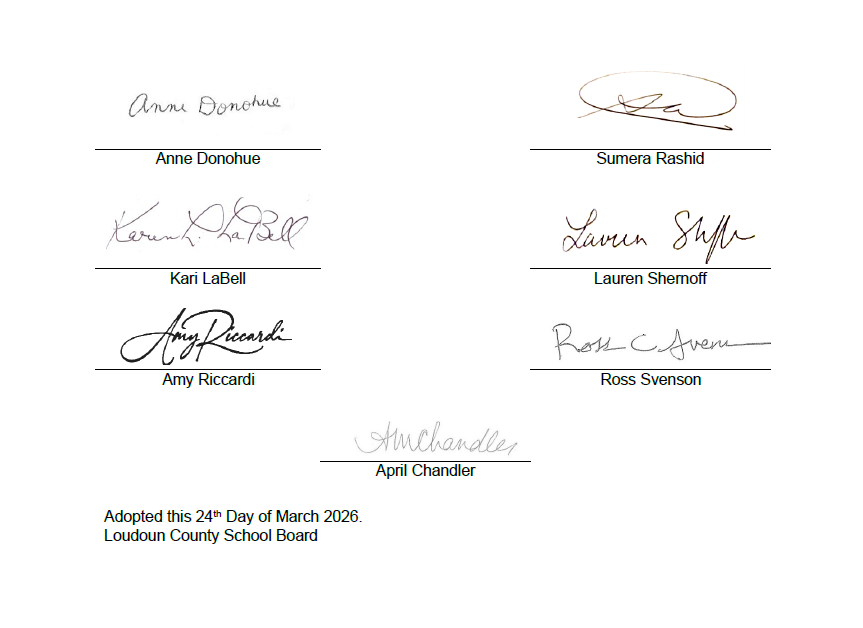 Anne Donohue
Anne Donohue
Sumera Rashid
Karen L. LaBell
Kari LaBell
Lauren
Lauren Shernoff
Amy Riccardi
Amy Riccardi
Ross C Svenson
Ross Svenson
AMChandler
April Chandler
Adopted this 24th Day of March 2026.
Loudoun County School Board